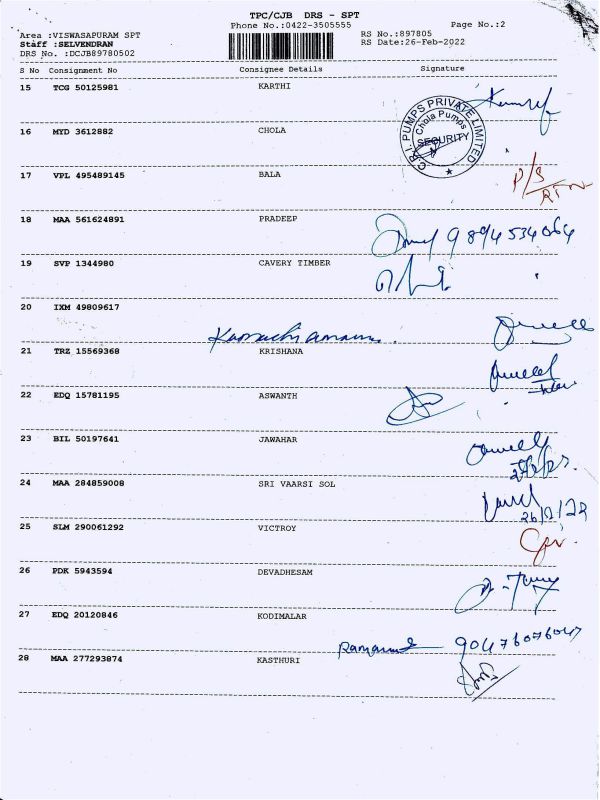 TPC/CJB DRS - SPT
Phone No.:0422-3505555 Page No.:2
Area :VISWASAPURAM SPT RS No.:897805
Staff :SELVENDRAN RS Date:26-Feb-2022
DRS No. :DCJB89780502
S No Consignment No Consignee Details Signature
15 TCG 50125981 KARTHI
C.R.I. PUMPS PRIVATE LIMITED
Chola Pumps
SECURITY
16 MYD 3612882 CHOLA
17 VPL 495489145 BALA
P/S
18 MAA 561624891 PRADEEP
9894534064
19 SVP 1344980 CAVERY TIMBER
20 IXM 49809617
21 TRZ 15569368 KRISHANA
22 EDQ 15781195 ASWANTH
23 BIL 50197641 JAWAHAR
24 MAA 284859008 SRI VAARSI SOL
26/2/22
25 SLM 290061292 VICTROY
26 PDK 5943594 DEVADHESAM
27 EDQ 20120846 KODIMALAR
9047607604７
28 MAA 277293874 KASTHURI